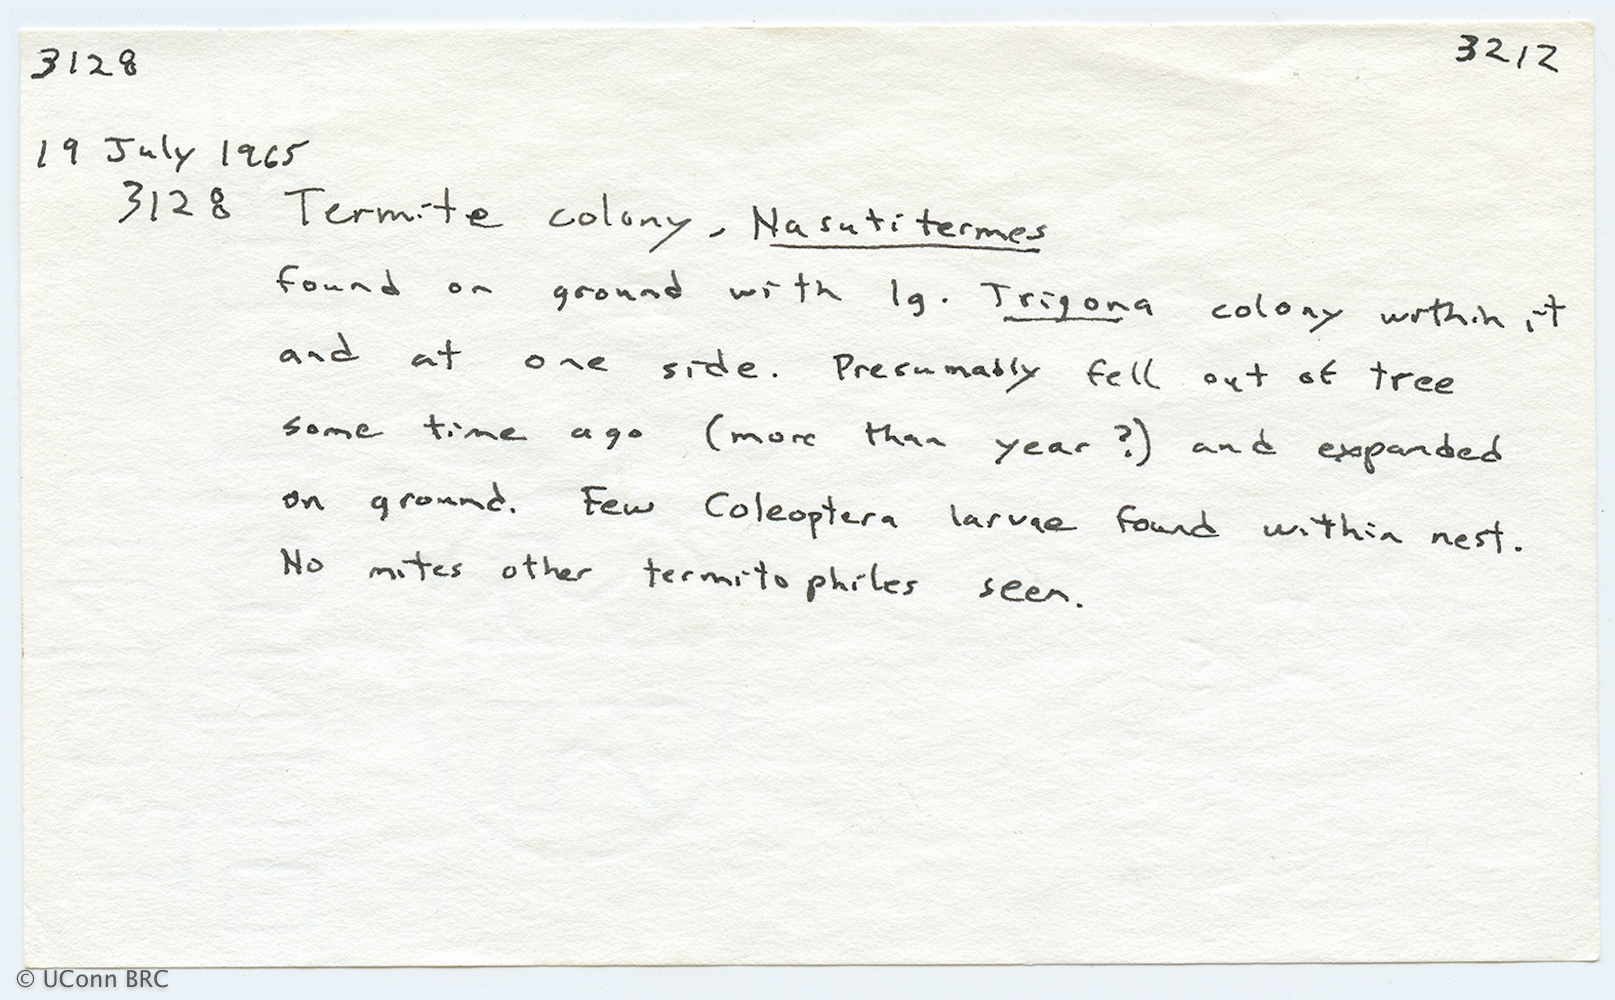 3128 3212
19 July 1965
3128 Termite colony, Nasutitermes
found on ground with lg. Trigona colony within it
and at one side. Presumably fell out of tree
some time ago (more than year?) and expanded
on ground. Few Coleoptera larvae found within nest.
No mites other termitophiles seen.
© UConn BRC